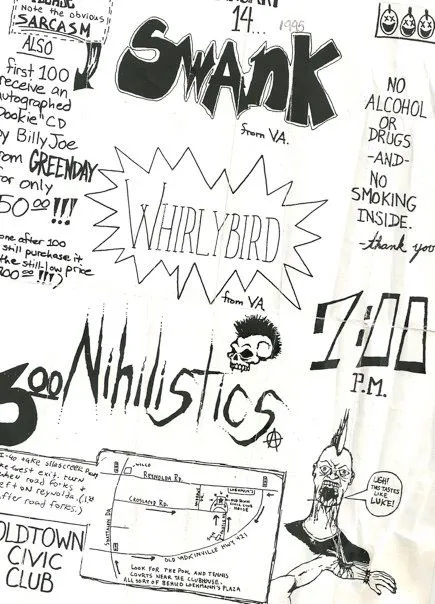 Note the obvious
SARCASM
14...
1995
ALSO
first 100
receive an
autographed
Dookie" CD
by Billy Joe
from GREENDAY
for only
50 00 !!!
one after 100
still purchase it
the still-low price
00 00 !!!)
SWANK
from VA.
NO
ALCOHOL
OR
DRUGS
-AND-
NO
SMOKING
INSIDE.
-thank you
WHIRLYBIRD
from VA
7:00
P.M.
Nihilistics
00
I-40 take silascreek pkwy
west exit. turn
when road forks &
left on Reynolda. (1st
after road forks.)
OLDTOWN
CIVIC
CLUB
REYNOLDA RD.
OLD YADKINVILLE HWY 421
LOOK FOR THE POOL AND TENNIS
COURTS NEAR THE CLUBHOUSE.
ALL SORT OF BEHIND LOEHMANN'S PLAZA
UGH!
THIS TASTES
LIKE
LUKE!